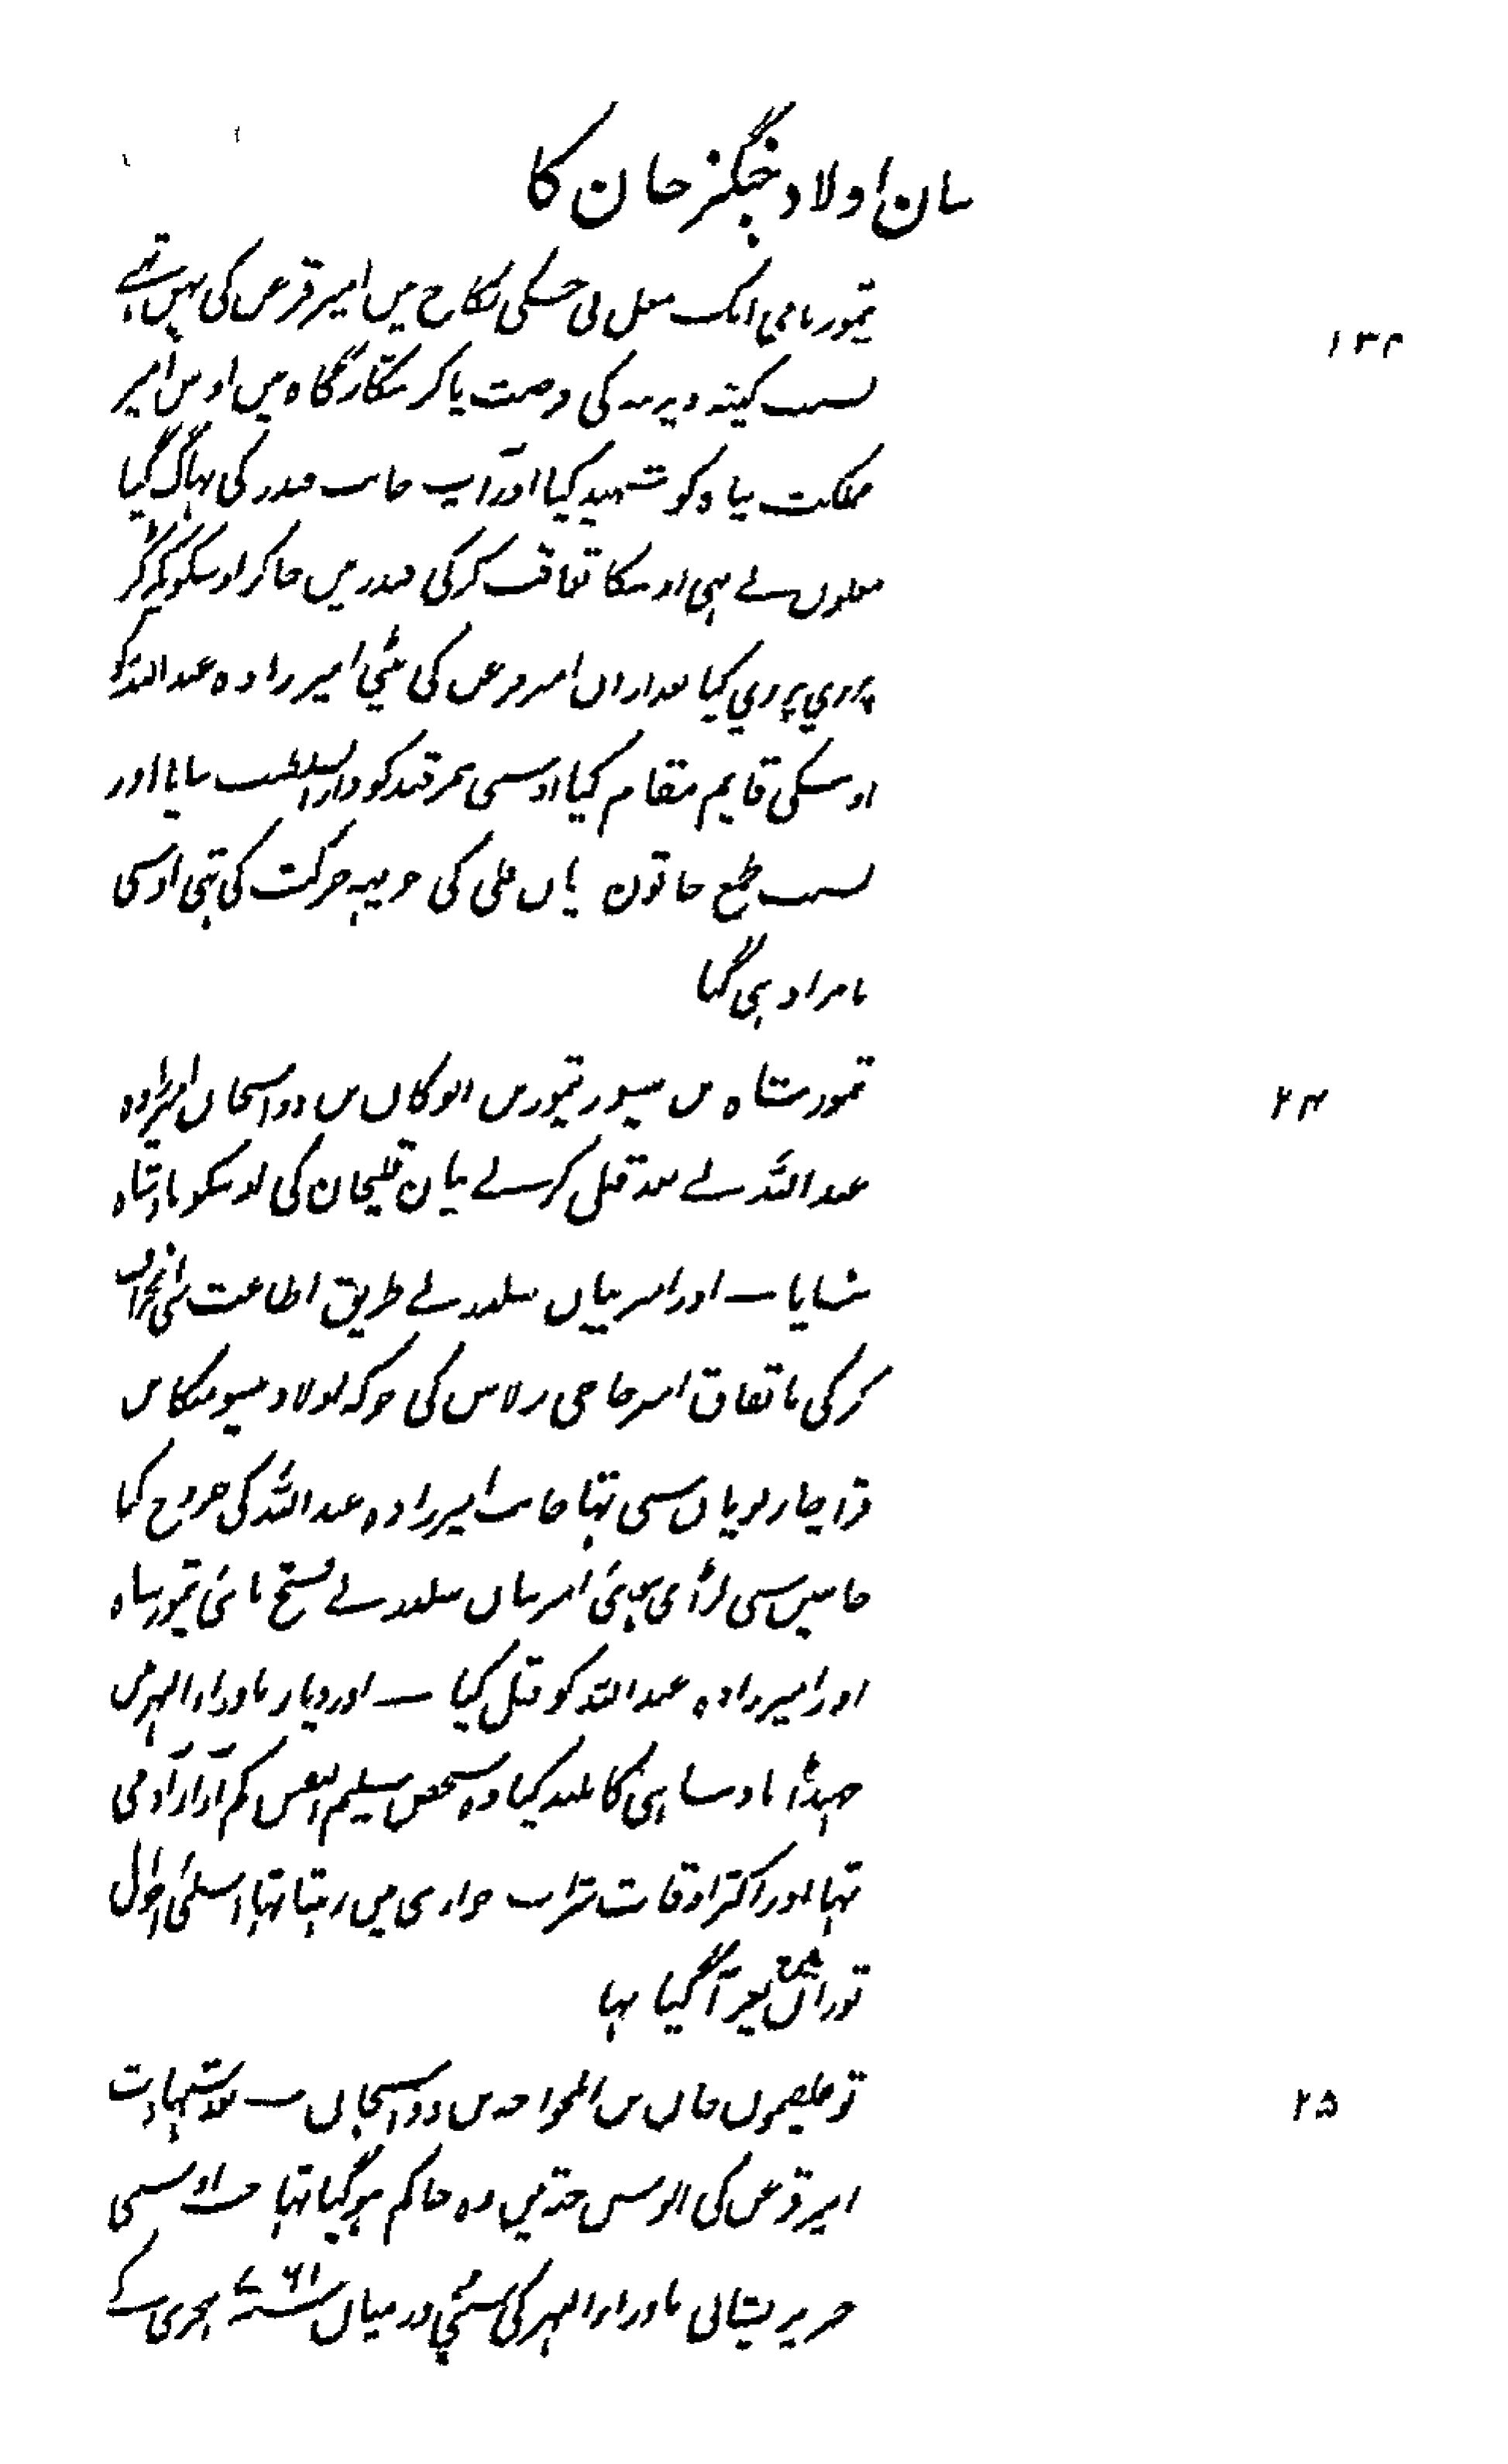 بیان اولاد چنگیز خان کا
تیمور نامی ایک مغل نی جسکی نکاح میں امیر قزغن کی بہن تہے
۱۳۴
بسبب کینہ دیرینہ کی فرصت پاکر شکارگاہ میں اوس امیر
مملکت پناہ کو شہید کیا اور آپ جانب قندز کی بہاگ گیا
مغلوں نے بہی اوسکا تعاقب کرکی قندز میں جاکر اوسکو پکڑ کر
پرزی پرزی کیا بعد ازاں امیر قزغن کی بیٹی امیر زادہ عبد اللہ کو
اوسکی قایم مقام کیا اوسی سمرقند کو دار السلطنت بنایا اور
بسبب طمع خاتون بیاں قلی کی جو یہہ حرکت کی تہی اوسی
نامراد ہی گیا
تیمور شاہ بن میسور تیمور بن ابوکان بن دوا سحان امیرزادہ
۲۴
عبد اللہ نے بعد قتل کرنے بیان قلیخان کی اوسکو بادشاہ
بنایا ۔ اور امیر بیاں سلدوز نے طریق اطاعت سی انحراف
کرکی باتفاق امیر حاجی برلاس کی جو کہ اولاد میسومنکا بن
قراچار نویاں سی تہا جانب امیرزادہ عبد اللہ کی خروج کیا
جانبین سی لڑائی ہوئی امیر بیاں سلدوز نے فتح پائی تیمور شاہ
اور امیرزادہ عبد اللہ کو قتل کیا ۔ اور دیار ماوراء النہر میں
جہنڈا بادشاہی کا بلند کیا وہ شخص سلیم النفس کم آزار آدمی
تہا اور اکثر اوقات شراب خواری میں رہتا تہا اسلئی احوال
توران میں تغیر آگیا تہا
تو غلیمور خان بن ایمل خواجہ بن دوا سحان ۔ بعد شہادت
۲۵
امیر قزغن کی الوس جتہ میں وہ حاکم ہو گیا تہا جب اوسی
خبر پریشانی ماوراء النہر کی سنی درمیان سنہ ۷۶۱ ہجری کے